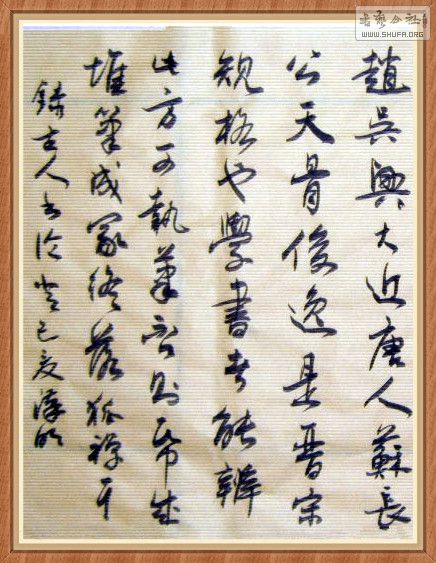 書藝公社
WWW.SHUFA.ORG
趙吳興大近唐人蘇長
公天骨俊逸是晉宋
規格也學書者能辨
此方可執筆否則帋成
堆筆成冢終落狐禪耳
錄古人書論 癸巳夏